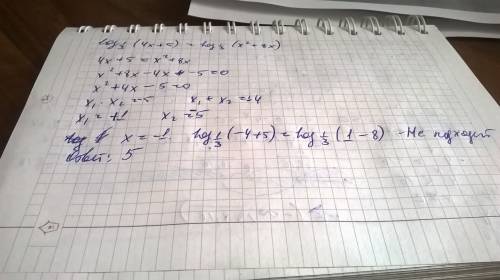 log 1/3 (4x+5) = log 1/3 (x²+8x)
4x+5 = x²+8x
x²+8x-4x-5=0
x²+4x-5=0
x₁·x₂=-5 x₁+x₂=14
x₁=-1 x₂=5
x=-1. log 1/3 (-4+5) = log 1/3 (1-8) -Не подходит
Ответ: 5